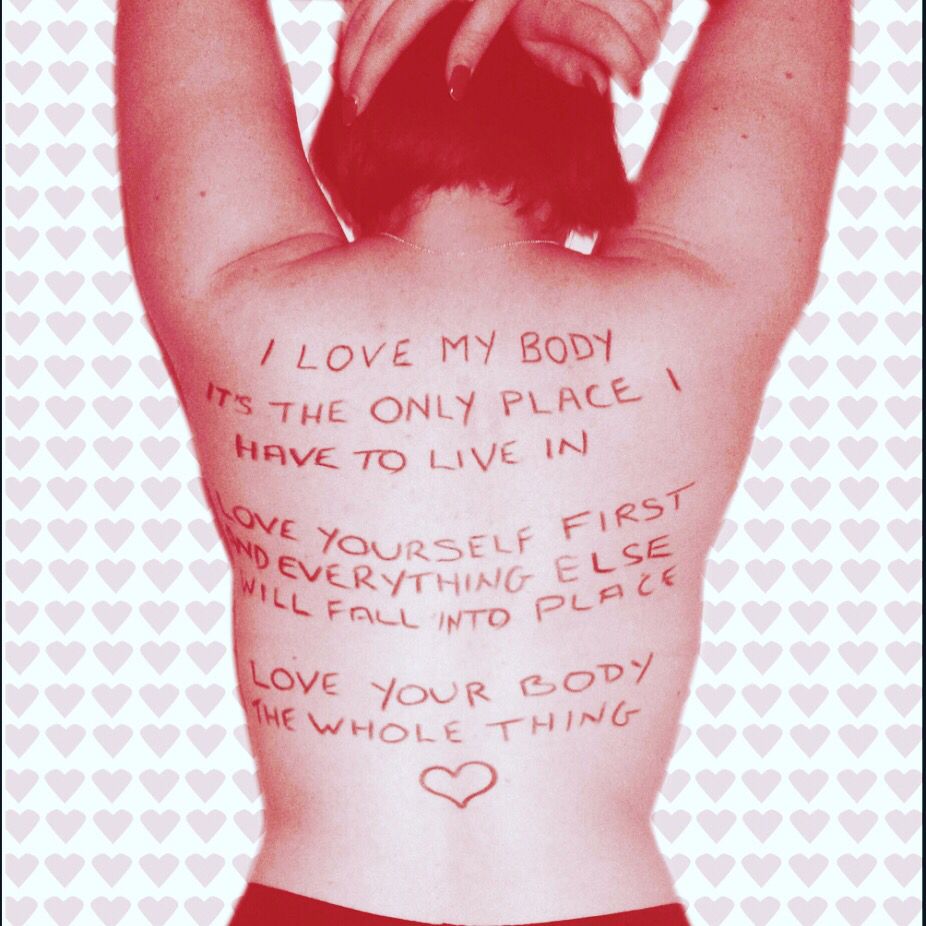 I LOVE MY BODY
IT'S THE ONLY PLACE I
HAVE TO LIVE IN
LOVE YOURSELF FIRST
AND EVERYTHING ELSE
WILL FALL INTO PLACE
LOVE YOUR BODY
THE WHOLE THING